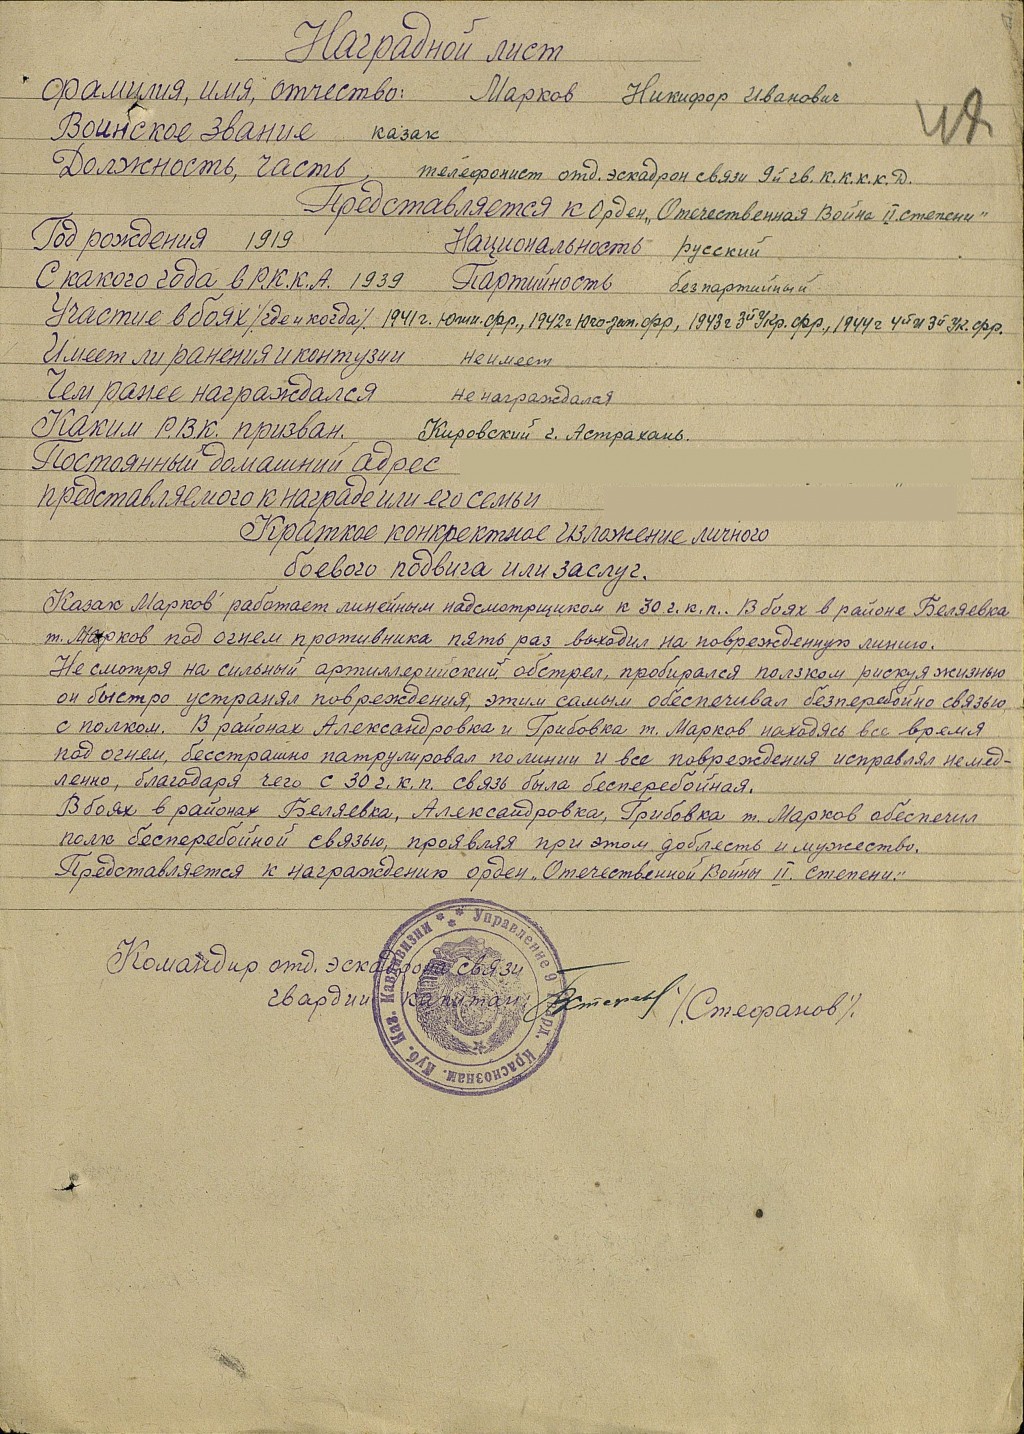 Наградной лист
Фамилия, имя, отчество: Марков Никифор Иванович
Воинское звание казак
Должность, часть, телефонист отд. эскадрон связи 9й гв. к.к.к.к.д.
Представляется к Орден „Отечественная Война II. степени"
Год рождения 1919 Национальность русский
С какого года в Р.К.К.А. 1939 Партийность безпартийный
Участие в боях /где и когда/. 1941 г. Южн. фр., 1942 г Юго-зап. фр., 1943 г 3й Укр. фр., 1944 г 4й и 3й Ук. фр.
Имеет ли ранения и контузии не имеет
Чем ранее награждался не награждался
Каким Р.В.К. призван. Кировский г. Астрахань.
Постоянный домашний адрес
представляемого к награде или его семьи
Краткое конкректное изложение личного
боевого подвига или заслуг.
Казак Марков работает линейным надсмотрщиком к 30 г.к.п.. В боях в районе Беляевка
т. Марков под огнем противника пять раз выходил на поврежденную линию.
Не смотря на сильный артиллерийский обстрел, пробирался ползком рискуя жизнью
он быстро устранял повреждения, этим самым обеспечивал безперебойно связью
с полком. В районах Александровка и Грибовка т. Марков находясь все время
под огнем, бесстрашно патрулировал по линии и все повреждения исправлял немед-
ленно, благодаря чего с 30 г.к.п. связь была бесперебойная.
В боях в районах Беляевка, Александровка, Грибовка т. Марков обеспечил
полк бесперебойной связью, проявляя при этом доблесть и мужество.
Представляется к награждению орден „Отечественной Войны II. степени."
Командир отд. эскадрона связи
гвардии капитан /Стефанов/.
Управление 9 Гвард. Краснознам. Куб. Каз. Кавдивизии